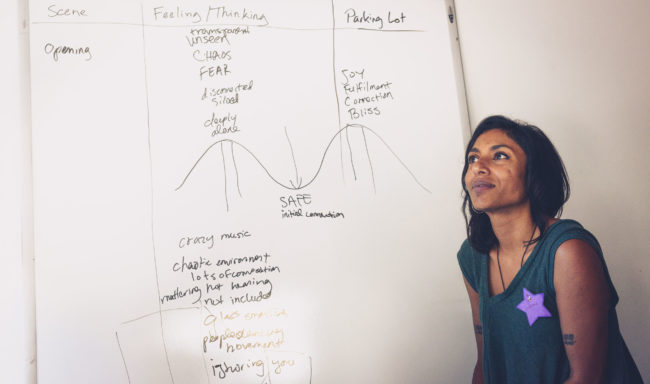 Scene
Feeling/Thinking
Parking Lot
Opening
unseen
CHAOS
FEAR
disconnected
siloed
deeply
alone
Joy
Fulfilment
Connection
Bliss
SAFE
initial connection
crazy music
chaotic environment
lots of
not hearing
not included
glass
movement
ignoring you